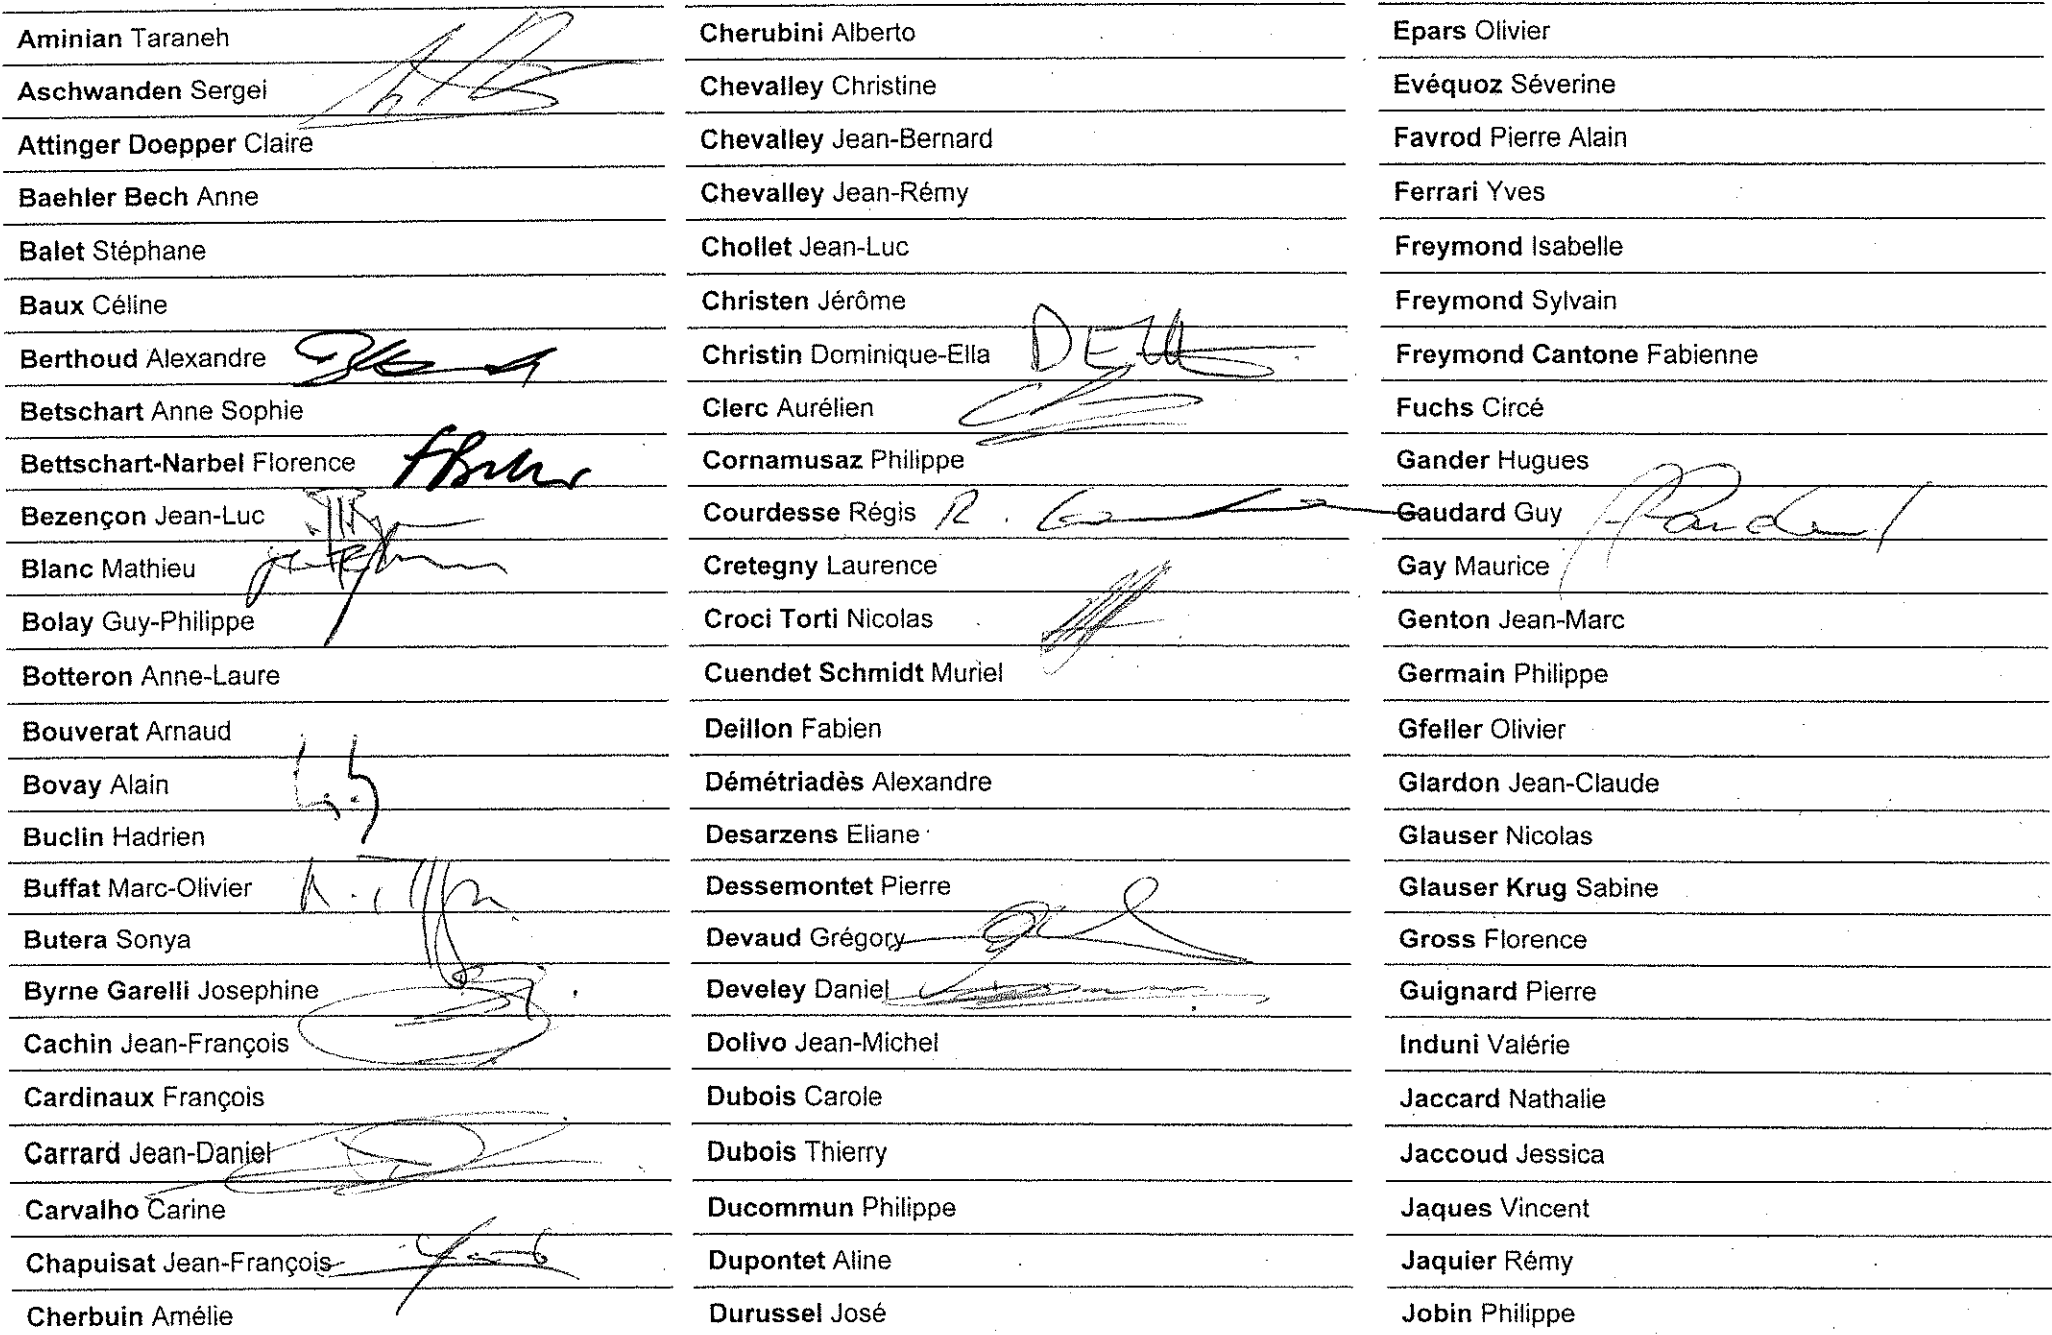 Aminian Taraneh
Aschwanden Sergei
Attinger Doepper Claire
Baehler Bech Anne
Balet Stéphane
Baux Céline
Berthoud Alexandre
Betschart Anne Sophie
Bettschart-Narbel Florence
Bezençon Jean-Luc
Blanc Mathieu
Bolay Guy-Philippe
Botteron Anne-Laure
Bouverat Arnaud
Bovay Alain
Buclin Hadrien
Buffat Marc-Olivier
Butera Sonya
Byrne Garelli Josephine
Cachin Jean-François
Cardinaux François
Carrard Jean-Daniel
Carvalho Carine
Chapuisat Jean-François
Cherbuin Amélie
Cherubini Alberto
Chevalley Christine
Chevalley Jean-Bernard
Chevalley Jean-Rémy
Chollet Jean-Luc
Christen Jérôme
Christin Dominique-Ella
Clerc Aurélien
Cornamusaz Philippe
Courdesse Régis R.
Cretegny Laurence
Croci Torti Nicolas
Cuendet Schmidt Muriel
Deillon Fabien
Démétriadès Alexandre
Desarzens Eliane
Dessemontet Pierre
Devaud Grégory
Develey Daniel
Dolivo Jean-Michel
Dubois Carole
Dubois Thierry
Ducommun Philippe
Dupontet Aline
Durussel José
Epars Olivier
Evéquoz Séverine
Favrod Pierre Alain
Ferrari Yves
Freymond Isabelle
Freymond Sylvain
Freymond Cantone Fabienne
Fuchs Circé
Gander Hugues
Gaudard Guy
Gay Maurice
Genton Jean-Marc
Germain Philippe
Gfeller Olivier
Glardon Jean-Claude
Glauser Nicolas
Glauser Krug Sabine
Gross Florence
Guignard Pierre
Induni Valérie
Jaccard Nathalie
Jaccoud Jessica
Jaques Vincent
Jaquier Rémy
Jobin Philippe